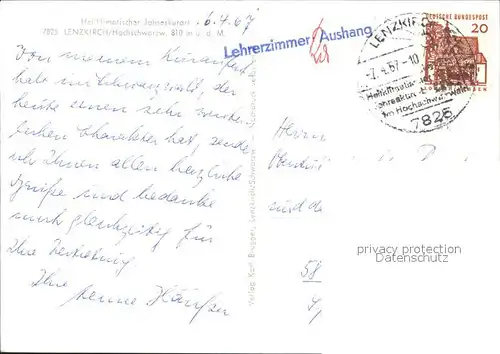 Heilklimatischer Jahreskurort
7825 LENZKIRCH/Hochschwarzw. 810 m ü. d. M.
6.4.67
Lehrerzimmer - Aushang
DEUTSCHE BUNDESPOST
20
LENZKIRCH
-7.4.67-10
Heilklimatischer
Jahreskurort
im Hochschwarzwald
7825
Von meinem Kuraufent-
halt im Schwarzwald, der
heute einen sehr winter-
lichen Charakter hat, sende
ich Ihnen allen herzliche
Grüße und bedanke
mich gleichzeitig für
Ihre Vertretung
Ihre
Verlag Karl Brugger, Lenzkirch/Schwarzw.
Herrn
und
58
privacy protection
Datenschutz